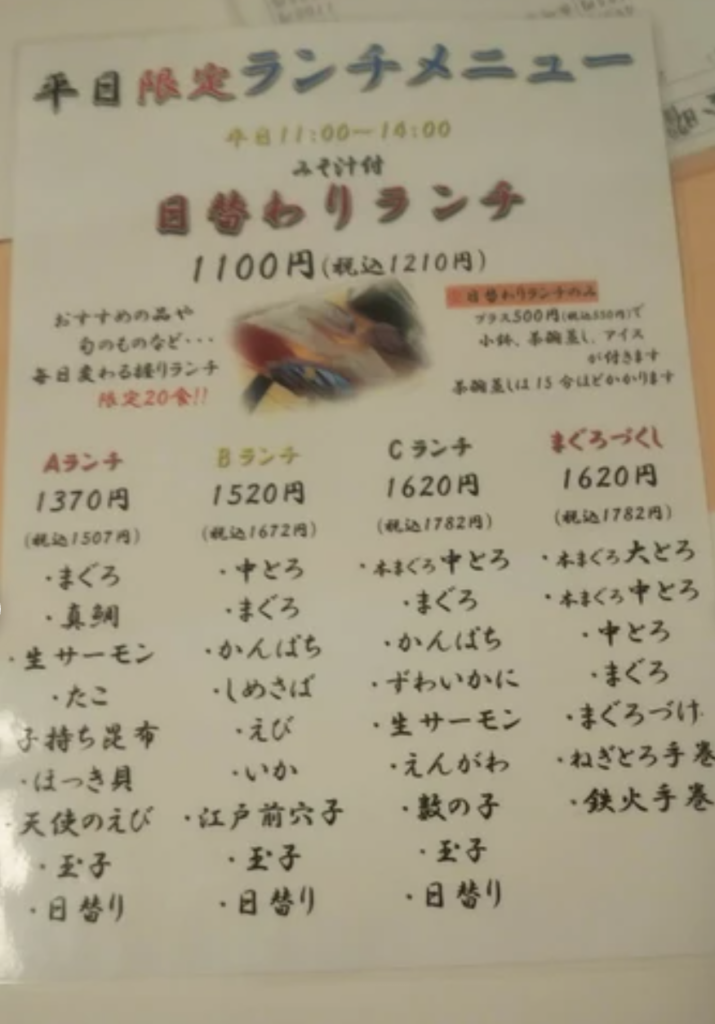 平日限定ランチメニュー
平日11:00〜14:00
みそ汁付
日替わりランチ
1100円(税込1210円)
おすすめの品や
旬のものなど・・・
毎日変わる握りランチ
限定20食!!
日替わりランチのみ
プラス500円(税込550円)で
小鉢、茶碗蒸し、アイス
が付きます
茶碗蒸しは15分ほどかかります
Aランチ
1370円
(税込1507円)
・まぐろ
・真鯛
・生サーモン
・たこ
子持ち昆布
・ほっき貝
・天使のえび
・玉子
・日替り
Bランチ
1520円
(税込1672円)
・中とろ
・まぐろ
・かんぱち
・しめさば
・えび
・いか
・江戸前穴子
・玉子
・日替り
Cランチ
1620円
(税込1782円)
・本まぐろ中とろ
・まぐろ
・かんぱち
・ずわいかに
・生サーモン
・えんがわ
・数の子
・玉子
・日替り
まぐろづくし
1620円
(税込1782円)
・本まぐろ大とろ
・本まぐろ中とろ
・中とろ
・まぐろ
・まぐろづけ
・ねぎとろ手巻
・鉄火手巻